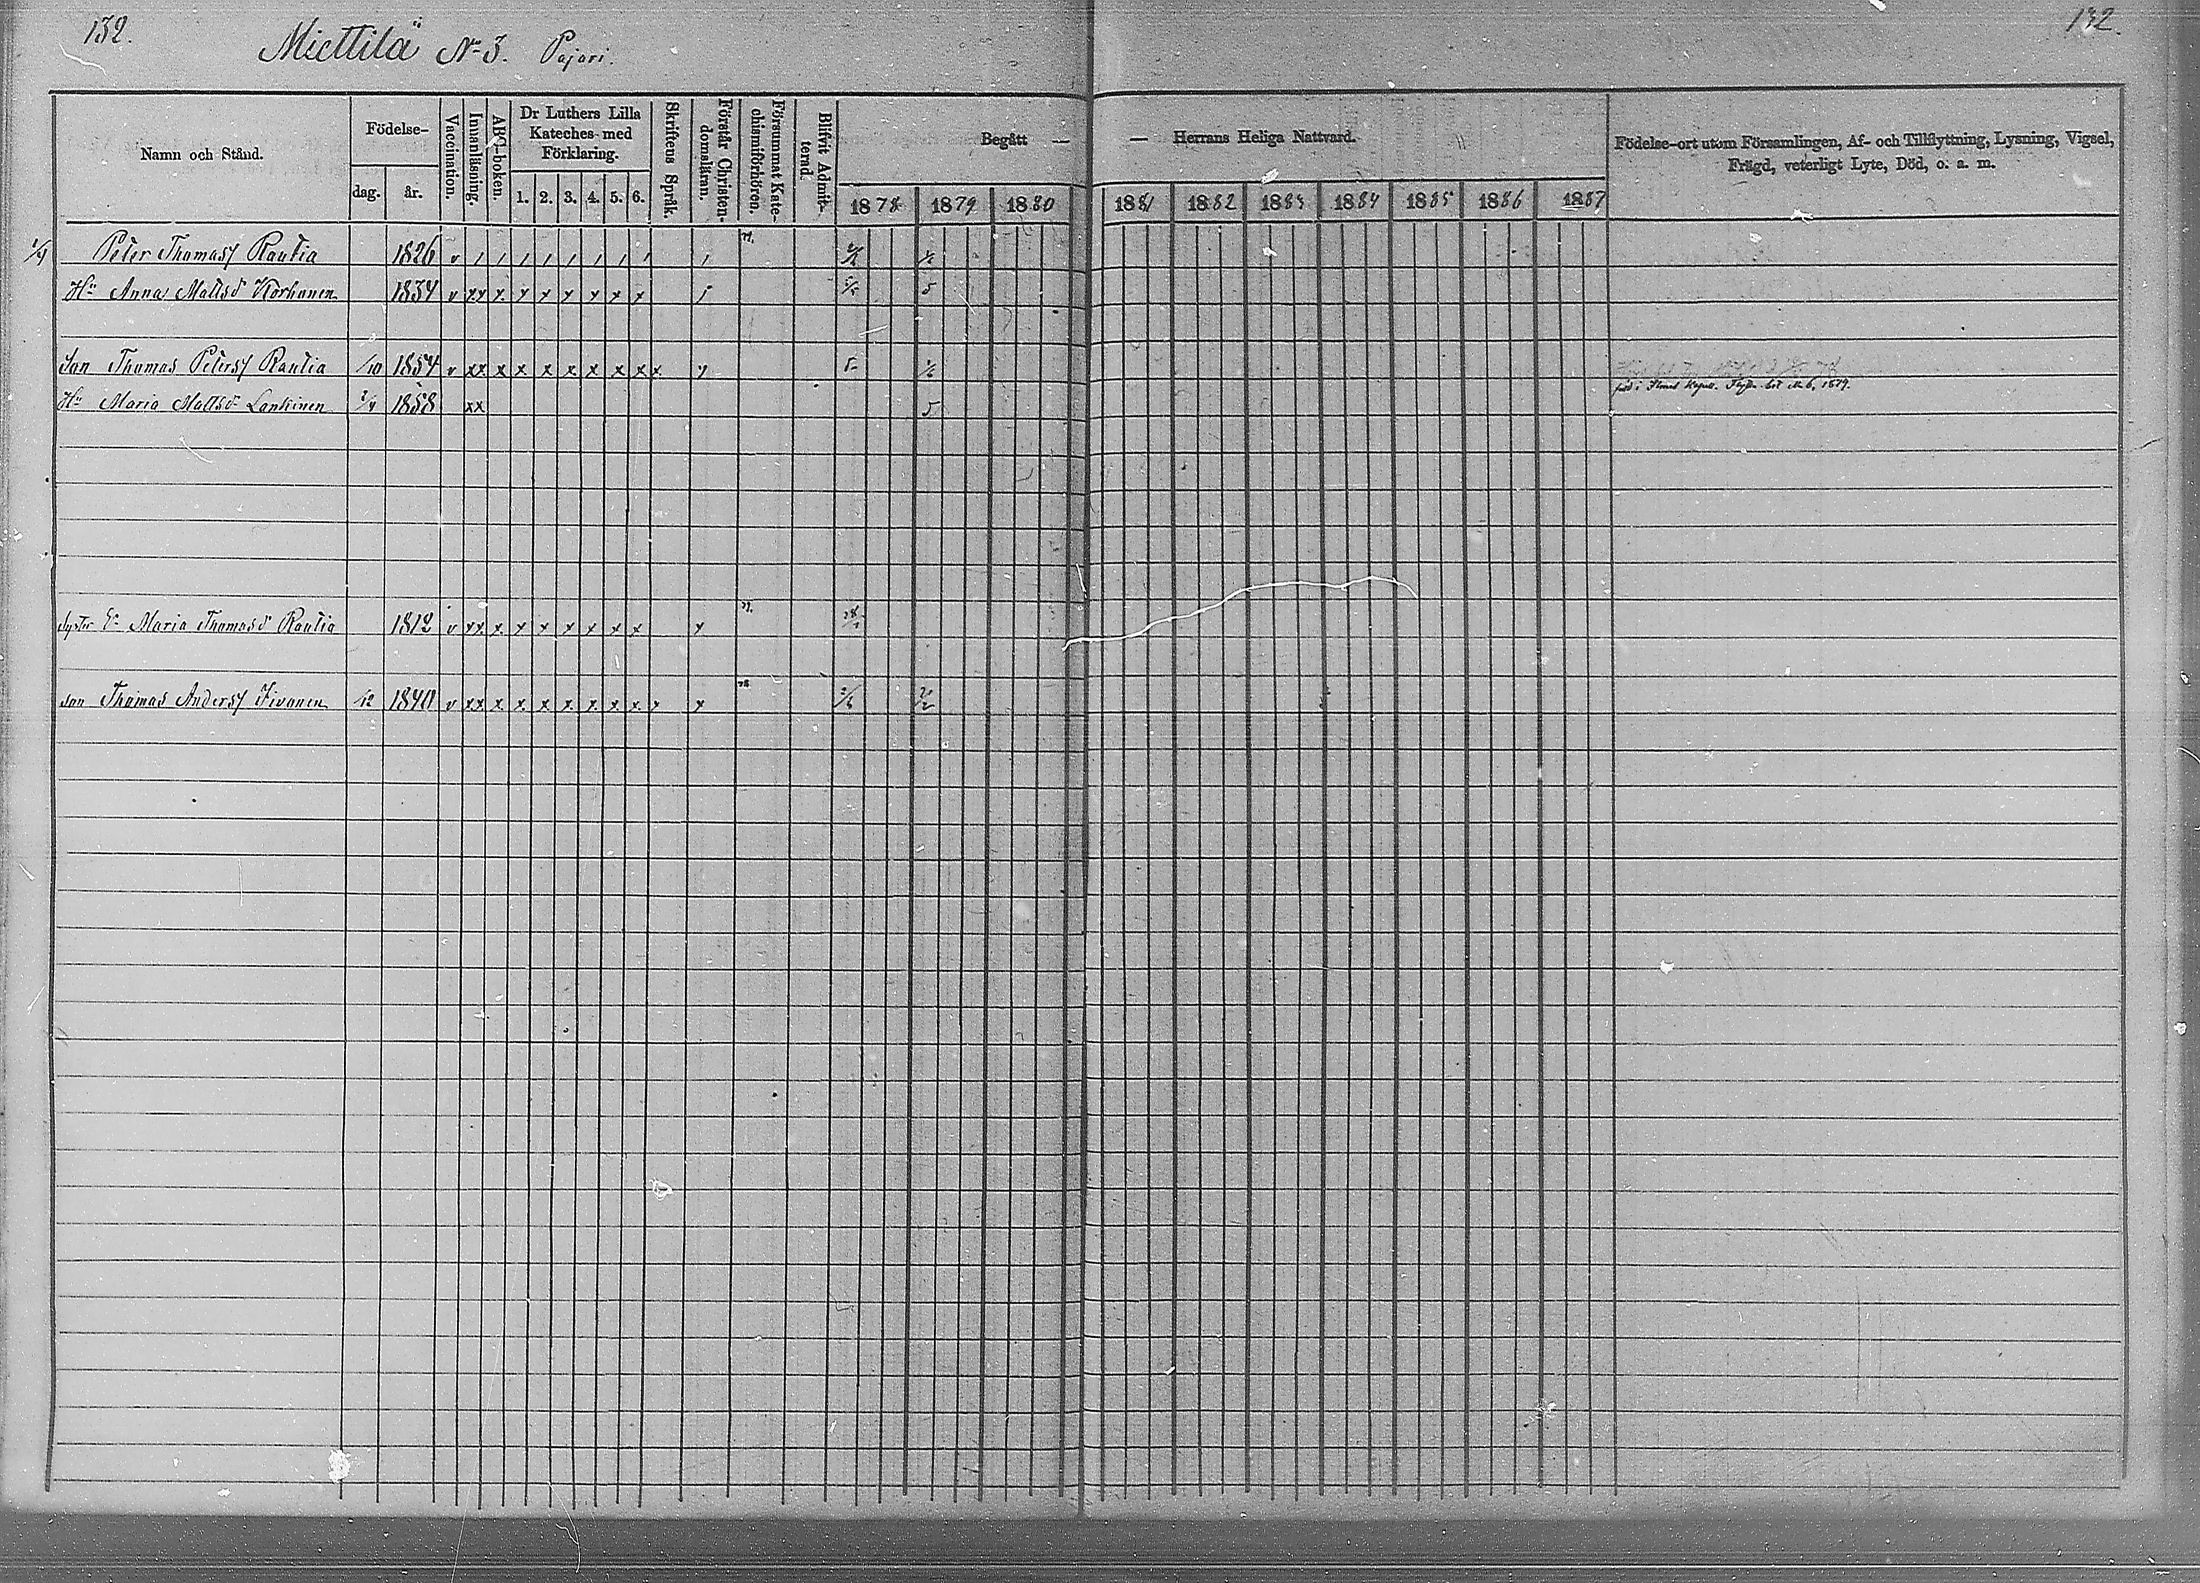 132.
Miettilä N:o 3. Pajari.
132.
Namn och Stånd.
Födelse-
dag. år.
Vaccination.
Innanläsning.
ABC-boken.
Dr Luthers Lilla
Kateches med
Förklaring.
1. 2. 3. 4. 5. 6.
Skriftens Språk.
Förstår Christen-
domsläran.
Försummat Kate-
chismiförhören.
Blifvit Admit-
terad.
Begått —
— Herrans Heliga Nattvard.
1878 1879 1880 1881 1882 1883 1884 1885 1886 1887
Födelse-ort utom Församlingen, Af- och Tillflyttning, Lysning, Vigsel,
Frägd, veterligt Lyte, Död, o. a. m.
1/4 Peter Thomass Rautia 1826 v / / / / / / / / /
Hu Anna Mattsdr Korhonen 1834 v xx x x x x x x x
Son Thomas Peterss Rautia /10 1854 v xx x x x x x x x x
Hu Maria Mattsdr Lankinen 1858 xx 5
Kapell. 1879.
Syster Maria Thomasdr Rautia 1812 v xx x x x x x x x x
son Thomas Anderss Iivonen /12 1840 v xx x x x x x x x x x